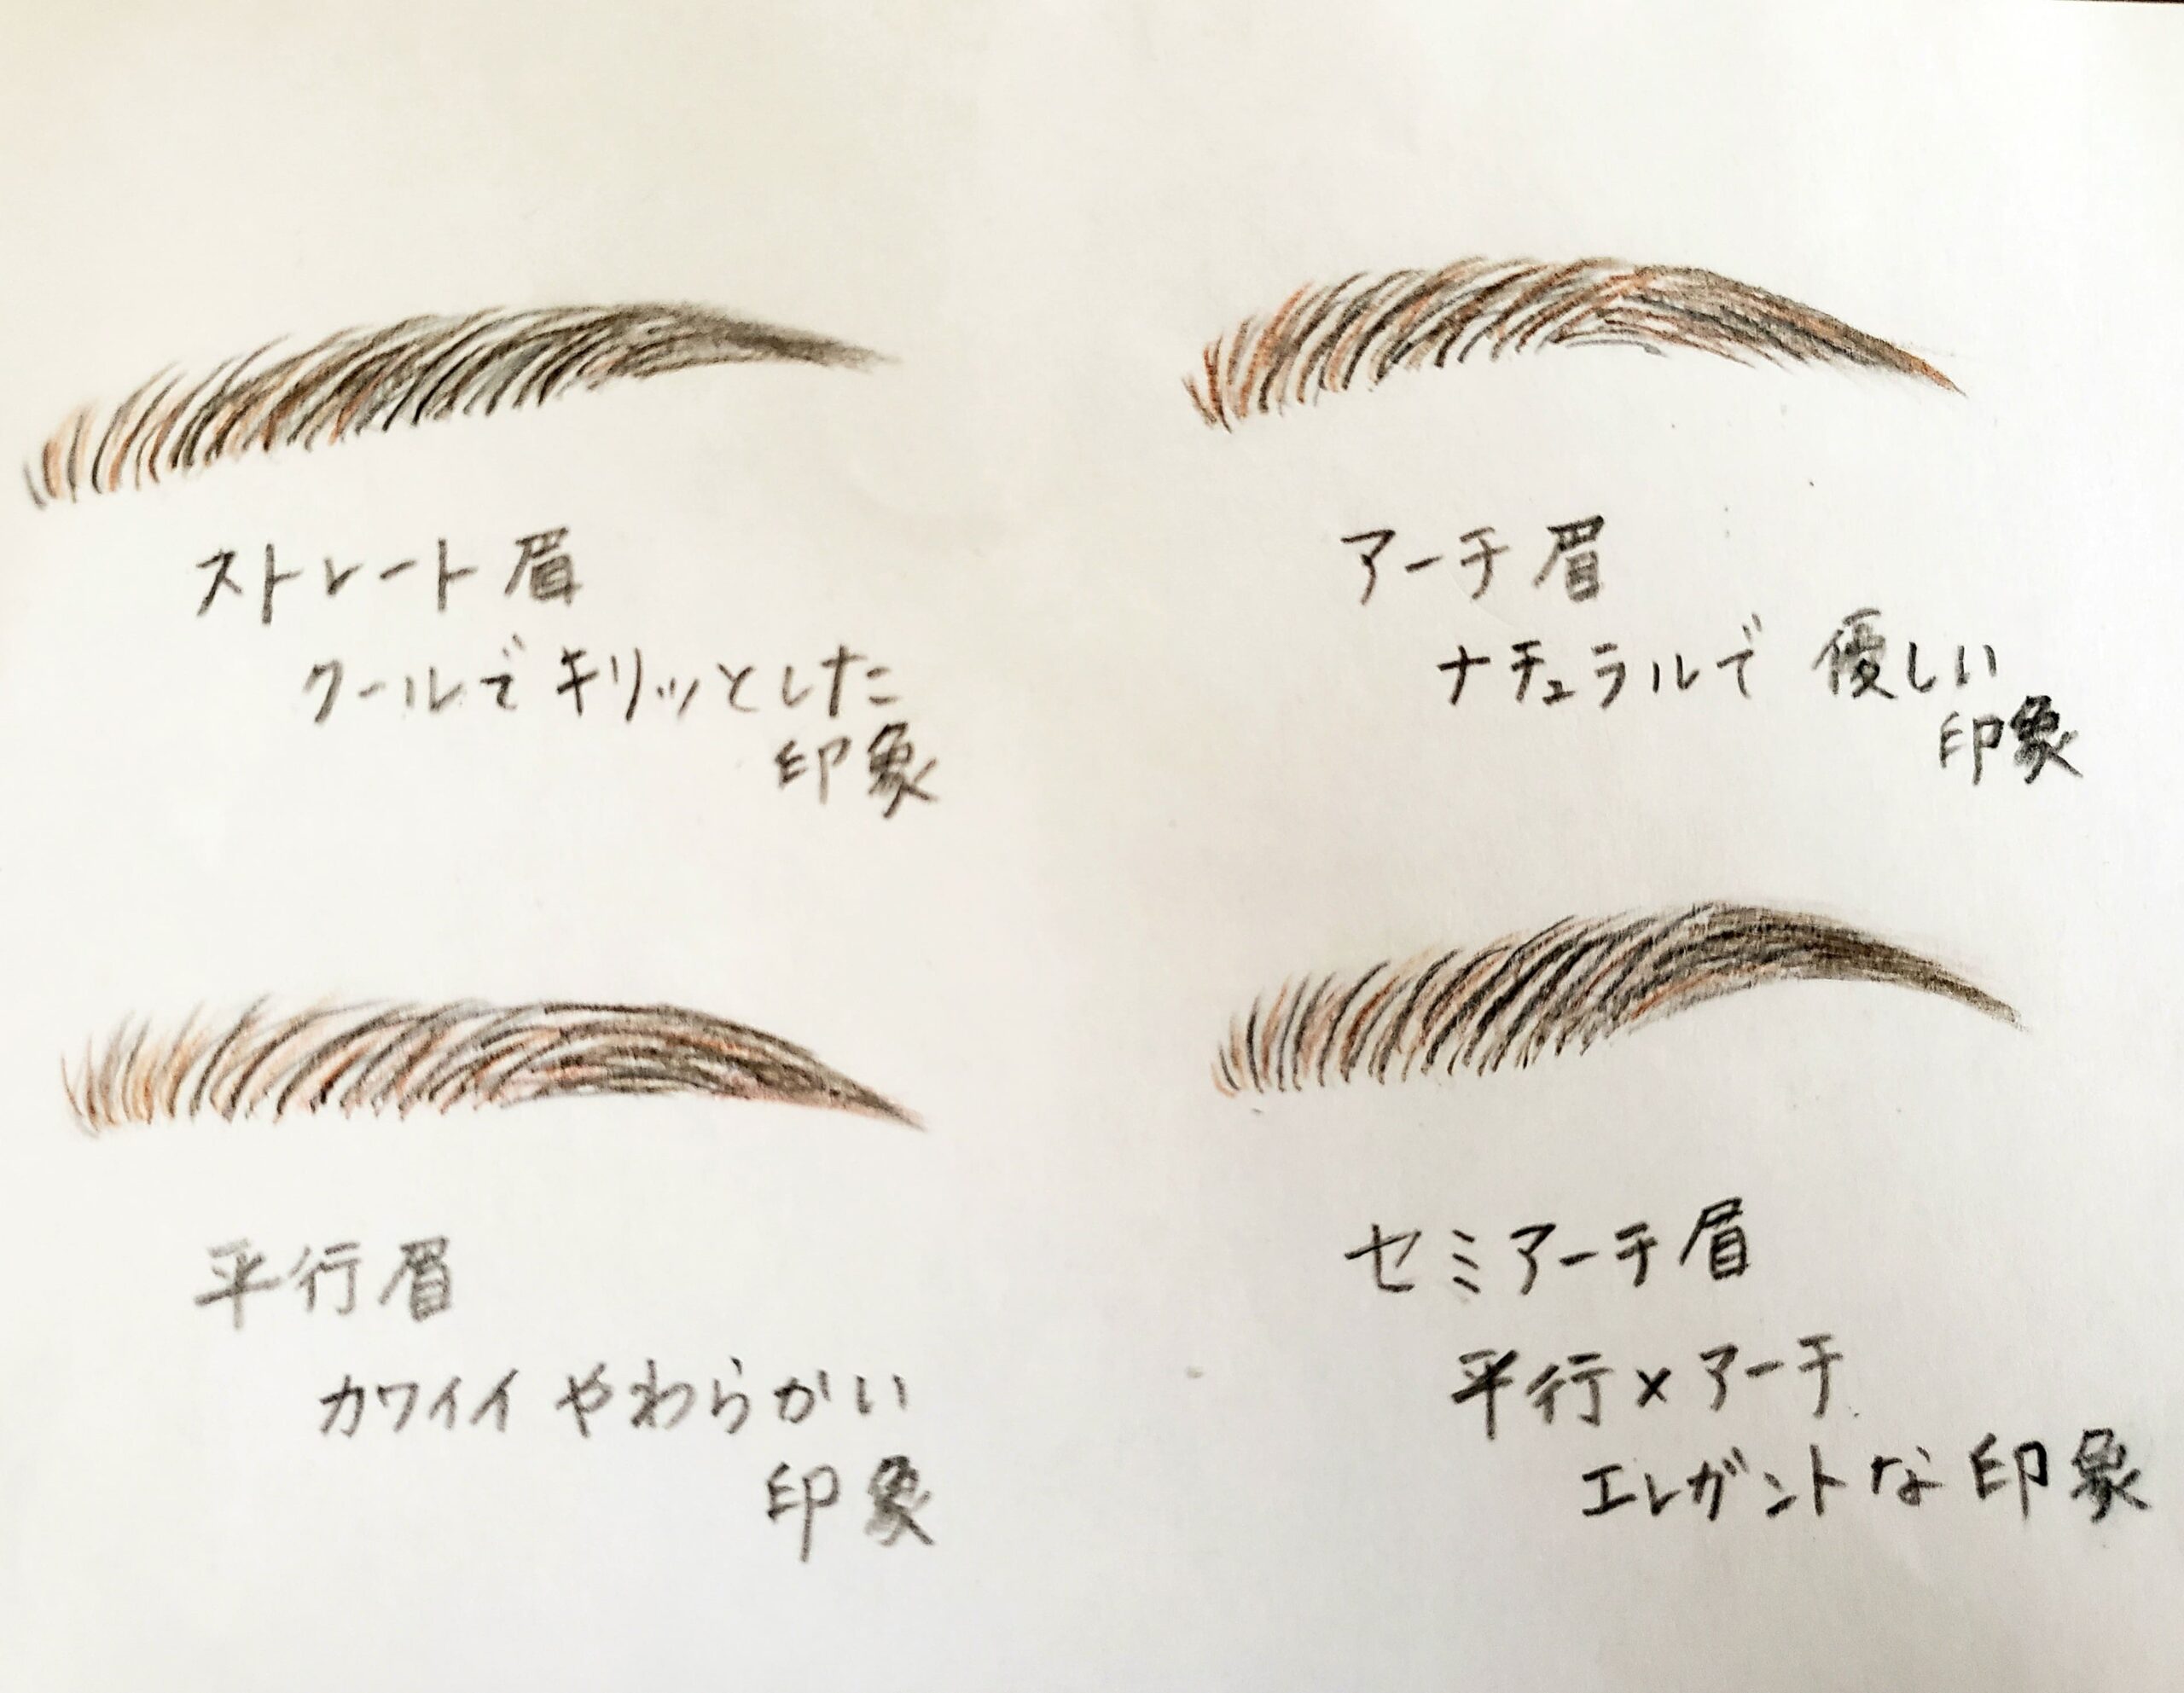 ストレート眉
クールでキリッとした
印象
アーチ眉
ナチュラルで 優しい
印象
平行眉
カワイイ やわらかい
印象
セミアーチ眉
平行×アーチ
エレガントな印象